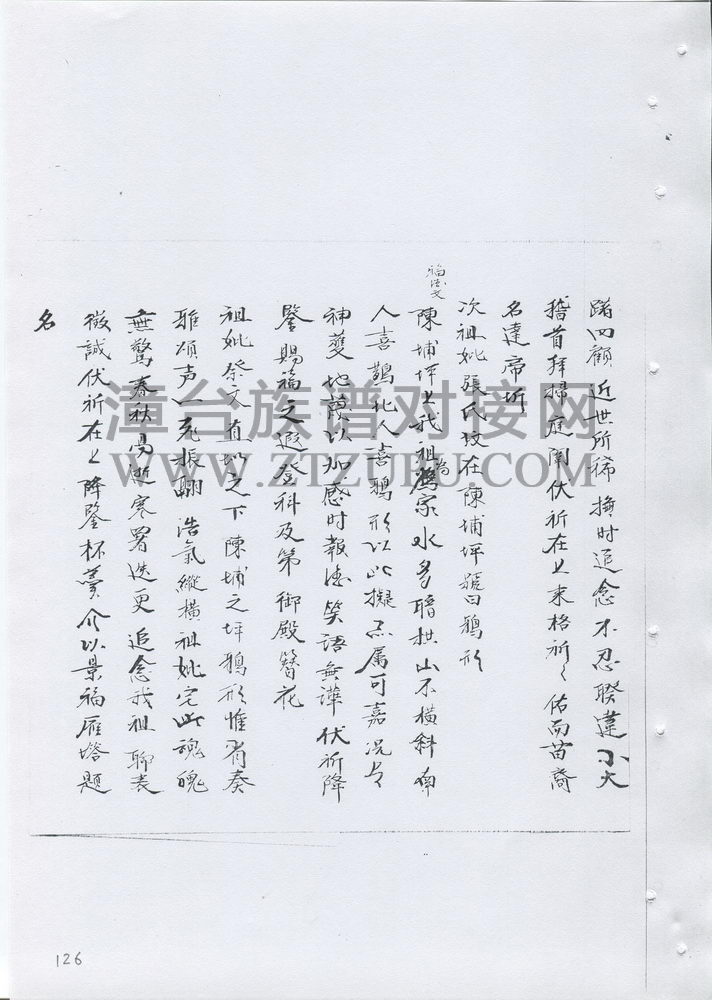 躋四顧近世所稀撫时追念不忍暌違小大
稽首拜掃庭闈伏祈在上来格祈〻佑而苗裔
名達帝圻
次祖妣張氏坟在陳埔坪號曰鴉形
福德文
陳埔坪上我祖為家水多暗拱山不橫斜南
人喜鵲北人喜鴉形以此擬亦属可嘉况与
神爽地萬以加感时報德笑语無譁伏祈降
鑒賜福之遐登科及第御殿簪花
祖妣祭文直坑之下陳埔之坪鴉形惟肖奏
雅頌声一花振翮浩氣縱横祖妣宅此魂魄
無驚春秋易逝寒暑迭更追念我祖聊表
微誠伏祈在上降鑒杯羹介以景福雁塔題
名
漳台族谱对接网
WWW.ZTZUPU.COM
126